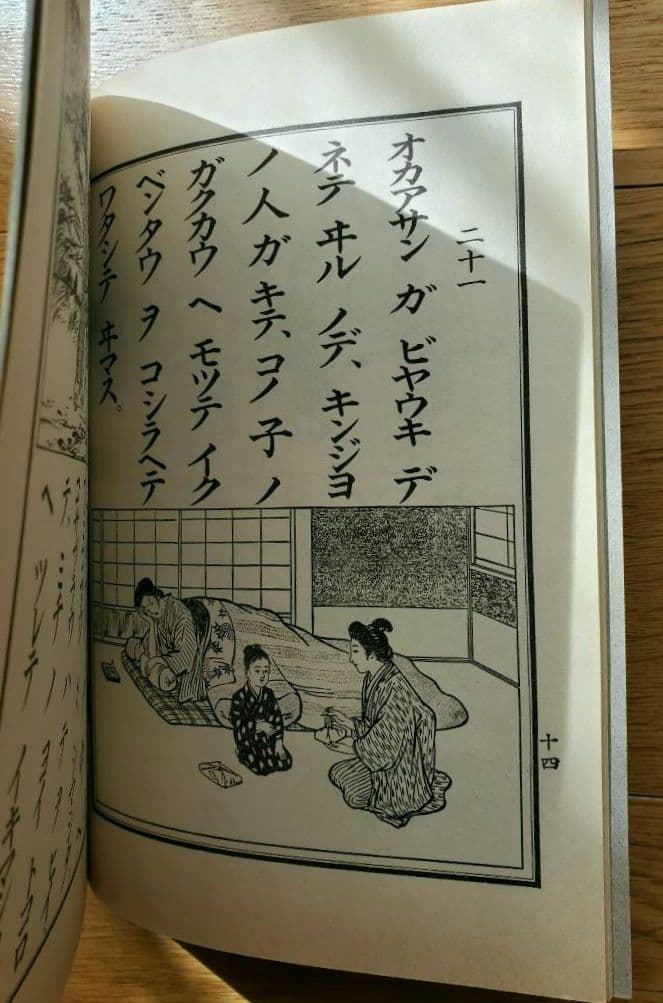 二十一
オカアサン ガ ビヤウキ デ
ネテ ヰル ノデ、キンジヨ
ノ 人 ガ キテ、コノ 子 ノ
ガクカウ ヘ モツテ イク
ベンタウ ヲ コシラヘテ
ワタシテ ヰマス。
十四
ヘ ツレテ イキマ